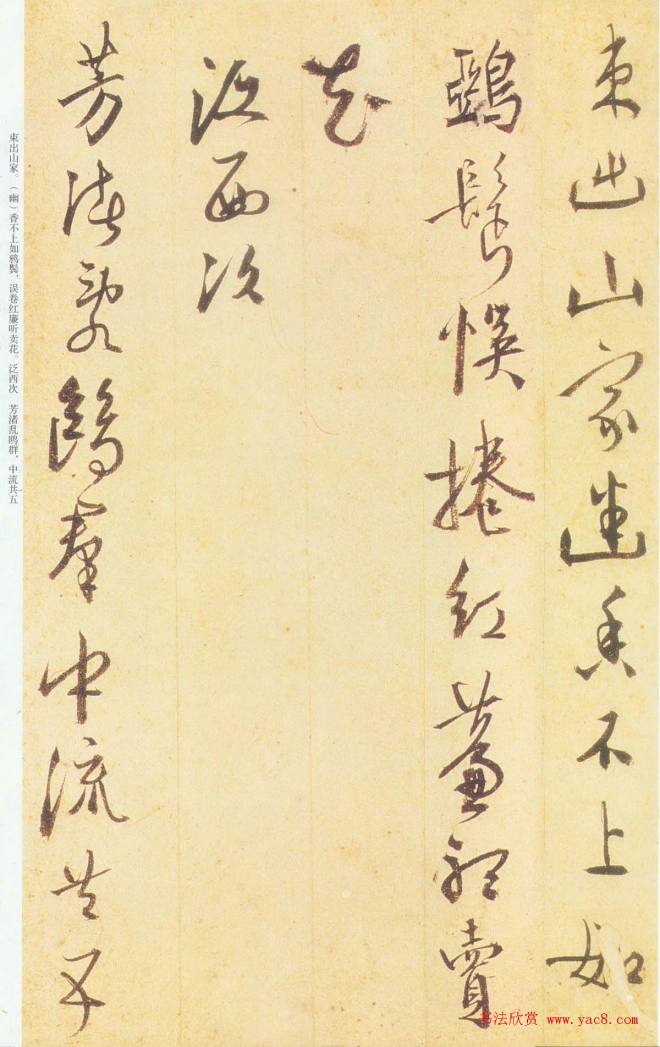 東出山家遠香不上如
鵶鬢悞捲紅簾聽賣
花
泛西次
芳渚亂鷗羣中流共
束出山家。（幽）香不上如鸦鬓，误卷红廉听卖花。泛西次　芳渚乱鸥群，中流共五
书法欣赏 www.yac8.com